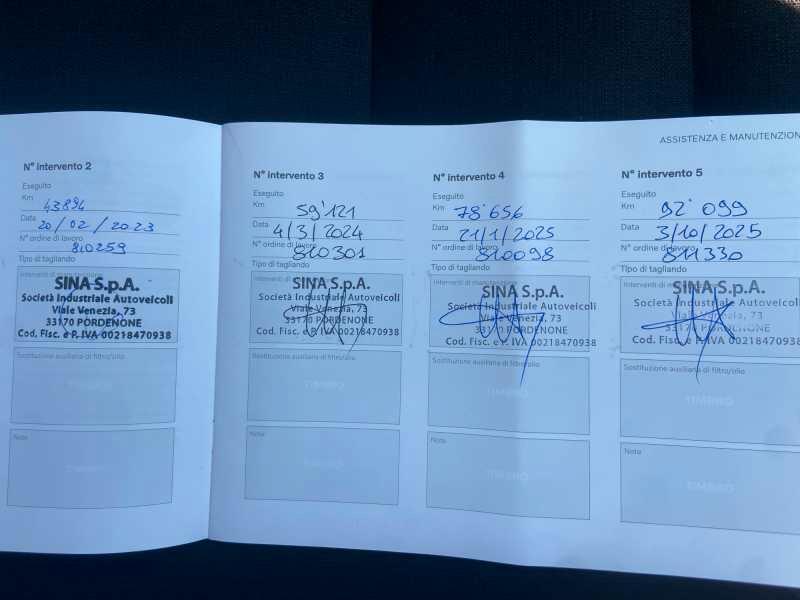 ASSISTENZA E MANUTENZION
N° intervento 2
Eseguito
Km 43894
Data 20/02/2023
N° ordine di lavoro 810259
Tipo di tagliando
Interventi di manutenzione
SINA S.p.A.
Società Industriale Autoveicoli
Viale Venezia, 73
33170 PORDENONE
Cod. Fisc. e P. IVA 00218470938
Sostituzione ausiliaria di filtro/olio
TIMBRO
Note
TIMBRO
N° intervento 3
Eseguito
Km 59'121
Data 4/3/2024
N° ordine di lavoro 810301
Tipo di tagliando
Interventi di
SINA S.p.A.
Società Industriale Autoveicoli
Viale Venezia, 73
33170 PORDENONE
Cod. Fisc. e P. IVA 00218470938
Sostituzione ausiliaria di filtro/olio
TIMBRO
Note
TIMBRO
N° intervento 4
Eseguito
Km 78°656
Data 21/1/2025
N° ordine di lavoro 810098
Tipo di tagliando
Interventi di
SINA S.p.A.
Società Industriale Autoveicoli
Viale Venezia, 73
33170 PORDENONE
Cod. Fisc. e P. IVA 00218470938
Sostituzione ausiliaria di filtro/olio
TIMBRO
Note
TIMBRO
N° intervento 5
Eseguito
Km 92°099
Data 3/10/2025
N° ordine di lavoro 811330
Tipo di tagliando
Interventi di
SINA S.p.A.
Società Industriale Autoveicoli
Viale Venezia, 73
33170 PORDENONE
Cod. Fisc. e P. IVA 00218470938
Sostituzione ausiliaria di filtro/olio
TIMBRO
Note
TIMBRO